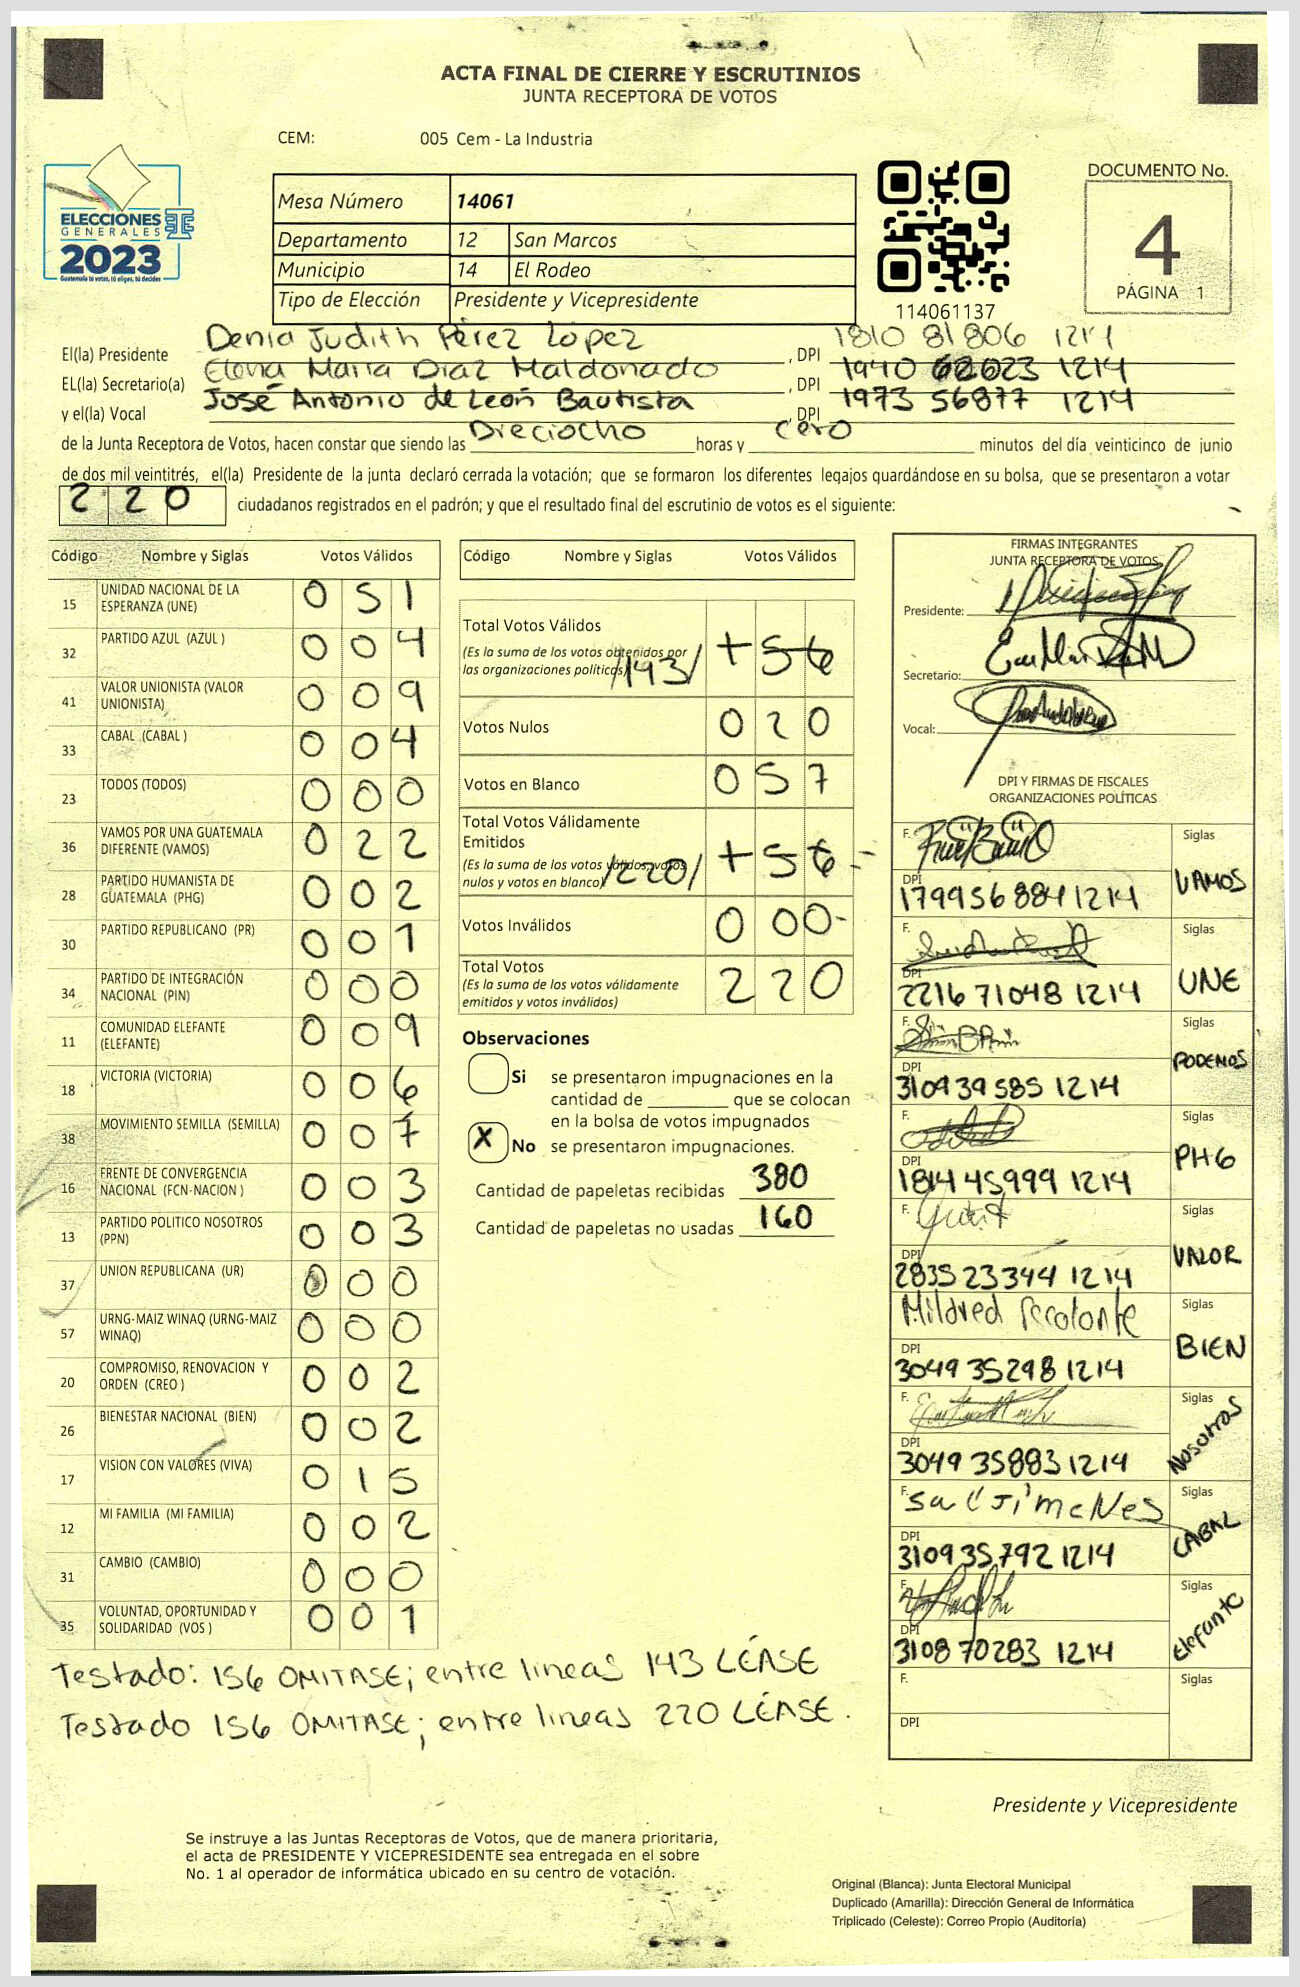 ACTA FINAL DE CIERRE Y ESCRUTINIOS
JUNTA RECEPTORA DE VOTOS
CEM: 005 Cem - La Industria
ELECCIONES
GENERALES
2023
Guatemala tú votas, tú eliges, tú decides
Mesa Número 14061
Departamento 12 San Marcos
Municipio 14 El Rodeo
Tipo de Elección Presidente y Vicepresidente
114061137
DOCUMENTO No.
4
PÁGINA 1
El(la) Presidente Denia Judith Pérez López, DPI 1810 81806 1214
EL(la) Secretario(a) María Díaz Maldonado, DPI 1940 62623 1214
y el(la) Vocal José Antonio de León Bautista, DPI 1973 56877 1214
de la Junta Receptora de Votos, hacen constar que siendo las Dieciocho horas y cero minutos del día veinticinco de junio
de dos mil veintitrés, el(la) Presidente de la junta declaró cerrada la votación; que se formaron los diferentes legajos guardándose en su bolsa, que se presentaron a votar
220 ciudadanos registrados en el padrón; y que el resultado final del escrutinio de votos es el siguiente:
Código Nombre y Siglas Votos Válidos
15 UNIDAD NACIONAL DE LA ESPERANZA (UNE) 051
32 PARTIDO AZUL (AZUL ) 004
41 VALOR UNIONISTA (VALOR UNIONISTA) 009
33 CABAL (CABAL ) 004
23 TODOS (TODOS) 000
36 VAMOS POR UNA GUATEMALA DIFERENTE (VAMOS) 022
28 PARTIDO HUMANISTA DE GUATEMALA (PHG) 002
30 PARTIDO REPUBLICANO (PR) 001
34 PARTIDO DE INTEGRACIÓN NACIONAL (PIN) 000
11 COMUNIDAD ELEFANTE (ELEFANTE) 009
18 VICTORIA (VICTORIA) 006
38 MOVIMIENTO SEMILLA (SEMILLA) 007
16 FRENTE DE CONVERGENCIA NACIONAL (FCN-NACION ) 003
13 PARTIDO POLITICO NOSOTROS (PPN) 003
37 UNION REPUBLICANA (UR) 000
57 URNG-MAIZ WINAQ (URNG-MAIZ WINAQ) 000
20 COMPROMISO, RENOVACION Y ORDEN (CREO ) 002
26 BIENESTAR NACIONAL (BIEN) 002
17 VISION CON VALORES (VIVA) 015
12 MI FAMILIA (MI FAMILIA) 002
31 CAMBIO (CAMBIO) 000
35 VOLUNTAD, OPORTUNIDAD Y SOLIDARIDAD (VOS ) 001
Código Nombre y Siglas Votos Válidos
Total Votos Válidos
(Es la suma de los votos obtenidos por
las organizaciones políticas) /143/ 156
Votos Nulos 020
Votos en Blanco 057
Total Votos Válidamente
Emitidos
(Es la suma de los votos válidos, votos
nulos y votos en blanco) /220/ 156
Votos Inválidos 000-
Total Votos
(Es la suma de los votos válidamente
emitidos y votos inválidos) 220
Observaciones
Si se presentaron impugnaciones en la
cantidad de ________ que se colocan
en la bolsa de votos impugnados
X No se presentaron impugnaciones.
Cantidad de papeletas recibidas 380
Cantidad de papeletas no usadas 160
FIRMAS INTEGRANTES
JUNTA RECEPTORA DE VOTOS
Presidente:
Secretario:
Vocal:
DPI Y FIRMAS DE FISCALES
ORGANIZACIONES POLÍTICAS
F. Siglas
DPI 1799 56884 1214 VAMOS
F. Siglas
DPI 2216 71048 1214 UNE
F. Siglas
DPI 3109 39585 1214 PODEMOS
F. Siglas
DPI 1814 45999 1214 PHG
F. Siglas
DPI 2835 23344 1214 VALOR
F. Mildred Siglas
DPI 3049 35298 1214 BIEN
F. Siglas
DPI 3049 35883 1214 Nosotros
F. Siglas
DPI 3109 35792 1214 CABAL
F. Siglas
DPI 3108 70283 1214 Elefante
F. Siglas
DPI
Testado: 156 OMITASE; entre lineas 143 LÉASE
Testado 156 OMITASE; entre lineas 220 LÉASE.
Presidente y Vicepresidente
Se instruye a las Juntas Receptoras de Votos, que de manera prioritaria,
el acta de PRESIDENTE Y VICEPRESIDENTE sea entregada en el sobre
No. 1 al operador de informática ubicado en su centro de votación.
Original (Blanca): Junta Electoral Municipal
Duplicado (Amarilla): Dirección General de Informática
Triplicado (Celeste): Correo Propio (Auditoría)